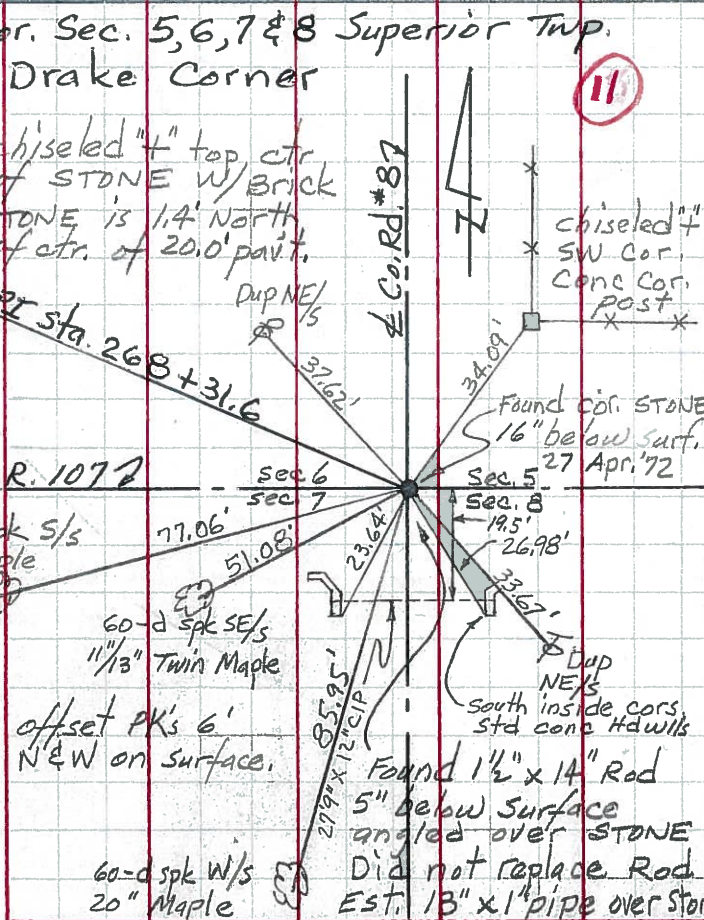 or. Sec. 5,6,7 & 8 Superior Twp.
Drake Corner
11
hiseled "+" top ctr
of STONE W/Brick
STONE is 1.4' North
of ctr. of 20.0' pav't.
℄ Co. Rd. #87
N
chiseled "+"
SW Cor.
Conc Cor.
post
Dup NE/s
PI sta. 268+31.6
37.62'
34.09'
Found cor. STONE
16" below surf.
27 Apr. '72
R. 107
sec 6
sec 7
Sec. 5
Sec. 8
pk S/s
ple
77.06'
51.08'
23.64'
19.5'
26.98'
33.67'
60-d spk SE/s
11"/13" Twin Maple
Dup
NE/s
South inside cors.
Std conc Hdwlls
85.95'
27'9" x 12" CIP
offset PK's 6'
N & W on surface.
Found 1½" x 14" Rod
5" below Surface
angled over STONE
Did not replace Rod
Est. 13" x 1" pipe over Ston
60-d spk W/s
20" Maple